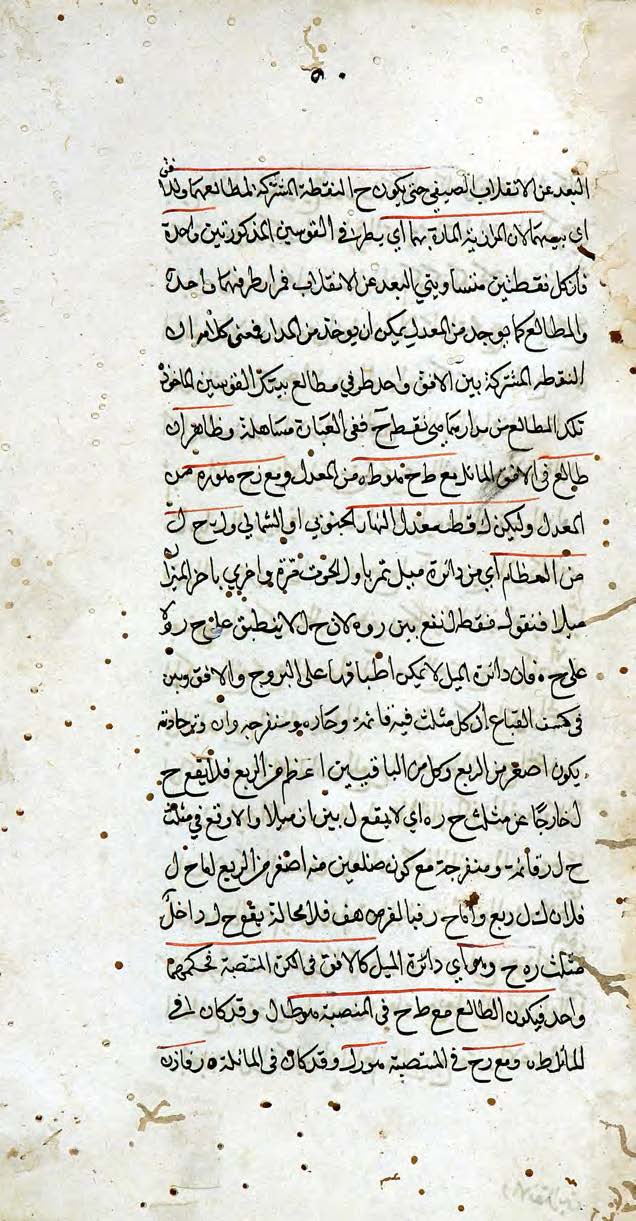 البعد عن الانقلاب الصيفي حتى يكون ح النقطة المشتركة لمطالعهما ولذا
اى بعينهما لان المدارية المارة بهما اي بطرفي القوسين المذكورتين واحدة
فان كل نقطتين متساويتي البعد عن الانقلاب فمدار طرفهما واحدة
والمطالع كما يوجد من المعدل يمكن ان يوخذ من المدار فمعنى كلامه ان
النقطه المشتركة بين الافق واحد طرفي مطالع بينك القوسين الماخوذ
تلك المطالع من مدارهما هي نقطة ح ففي العبارة مساهلة وظاهر ان
طالع في الافق المائل مع ط ح هو طه من المعدل ومع ز ح هو ره من
المعدل وليكن ل قطب معدل النهار الجنوبي او الشمالي وليز ح ل
من العظام اي من دائرة ميل تمر باول الحوت مرة واخري باخر الميزان
مثلا فنقول نقطة ل تقع بين ره لان ح ل لا ينطبق على ح ر ولا
على ح ه فان دائرة الميل لا يمكن اطباقها على البروج والافق وبين
في كشف القناع ان كل مثلث فيه قائمة وحاده ومنفرجه وان وتر حادته
يكون اصغر من الربع وكل من الباقيين اعظم من الربع فلا يقع ح
ل خارجا عن مثلث ح ره اي لا يقع ل بين از مثلا والا وقع في مثلث
ح ل ر قائمة ومنفرجة مع كون ضلعين منه اصغر من الربع اما ح ل
فلان ل ربع واما ح ر فبالفرض هف فلا محالة يقع ح ل داخل
مثلث ره ح وهو اي دائرة الميل كالافق في الكرة المنتصبة فحكمهما
واحد فيكون الطالع مع ط ح في المنتصبة هو ط ل وقد كان في
المائل طه ومع ز ح في المنتصبة هو ر ل وقد كان في المائلة ه ر فاذن